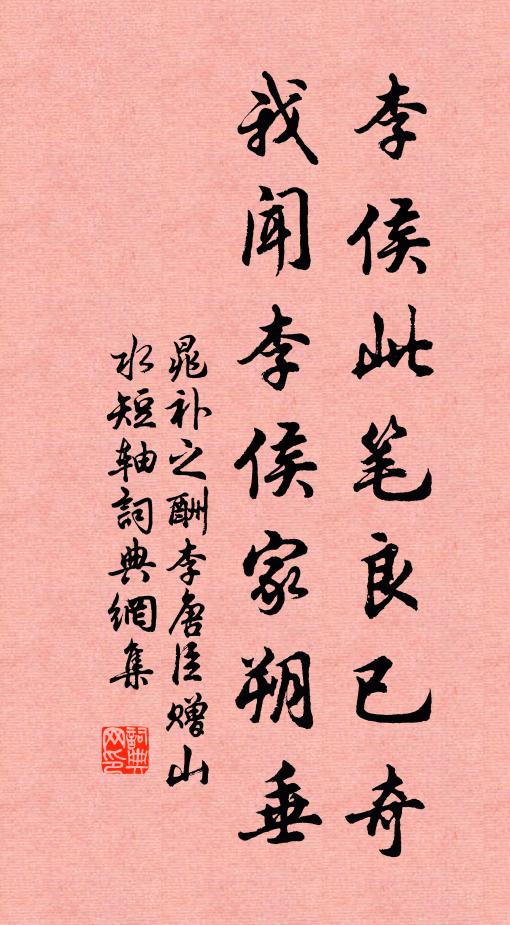 李侯此笔良已奇
我闻李侯家朔垂
晁补之酬李唐臣赠山
水短轴詞典網集
詞典网印